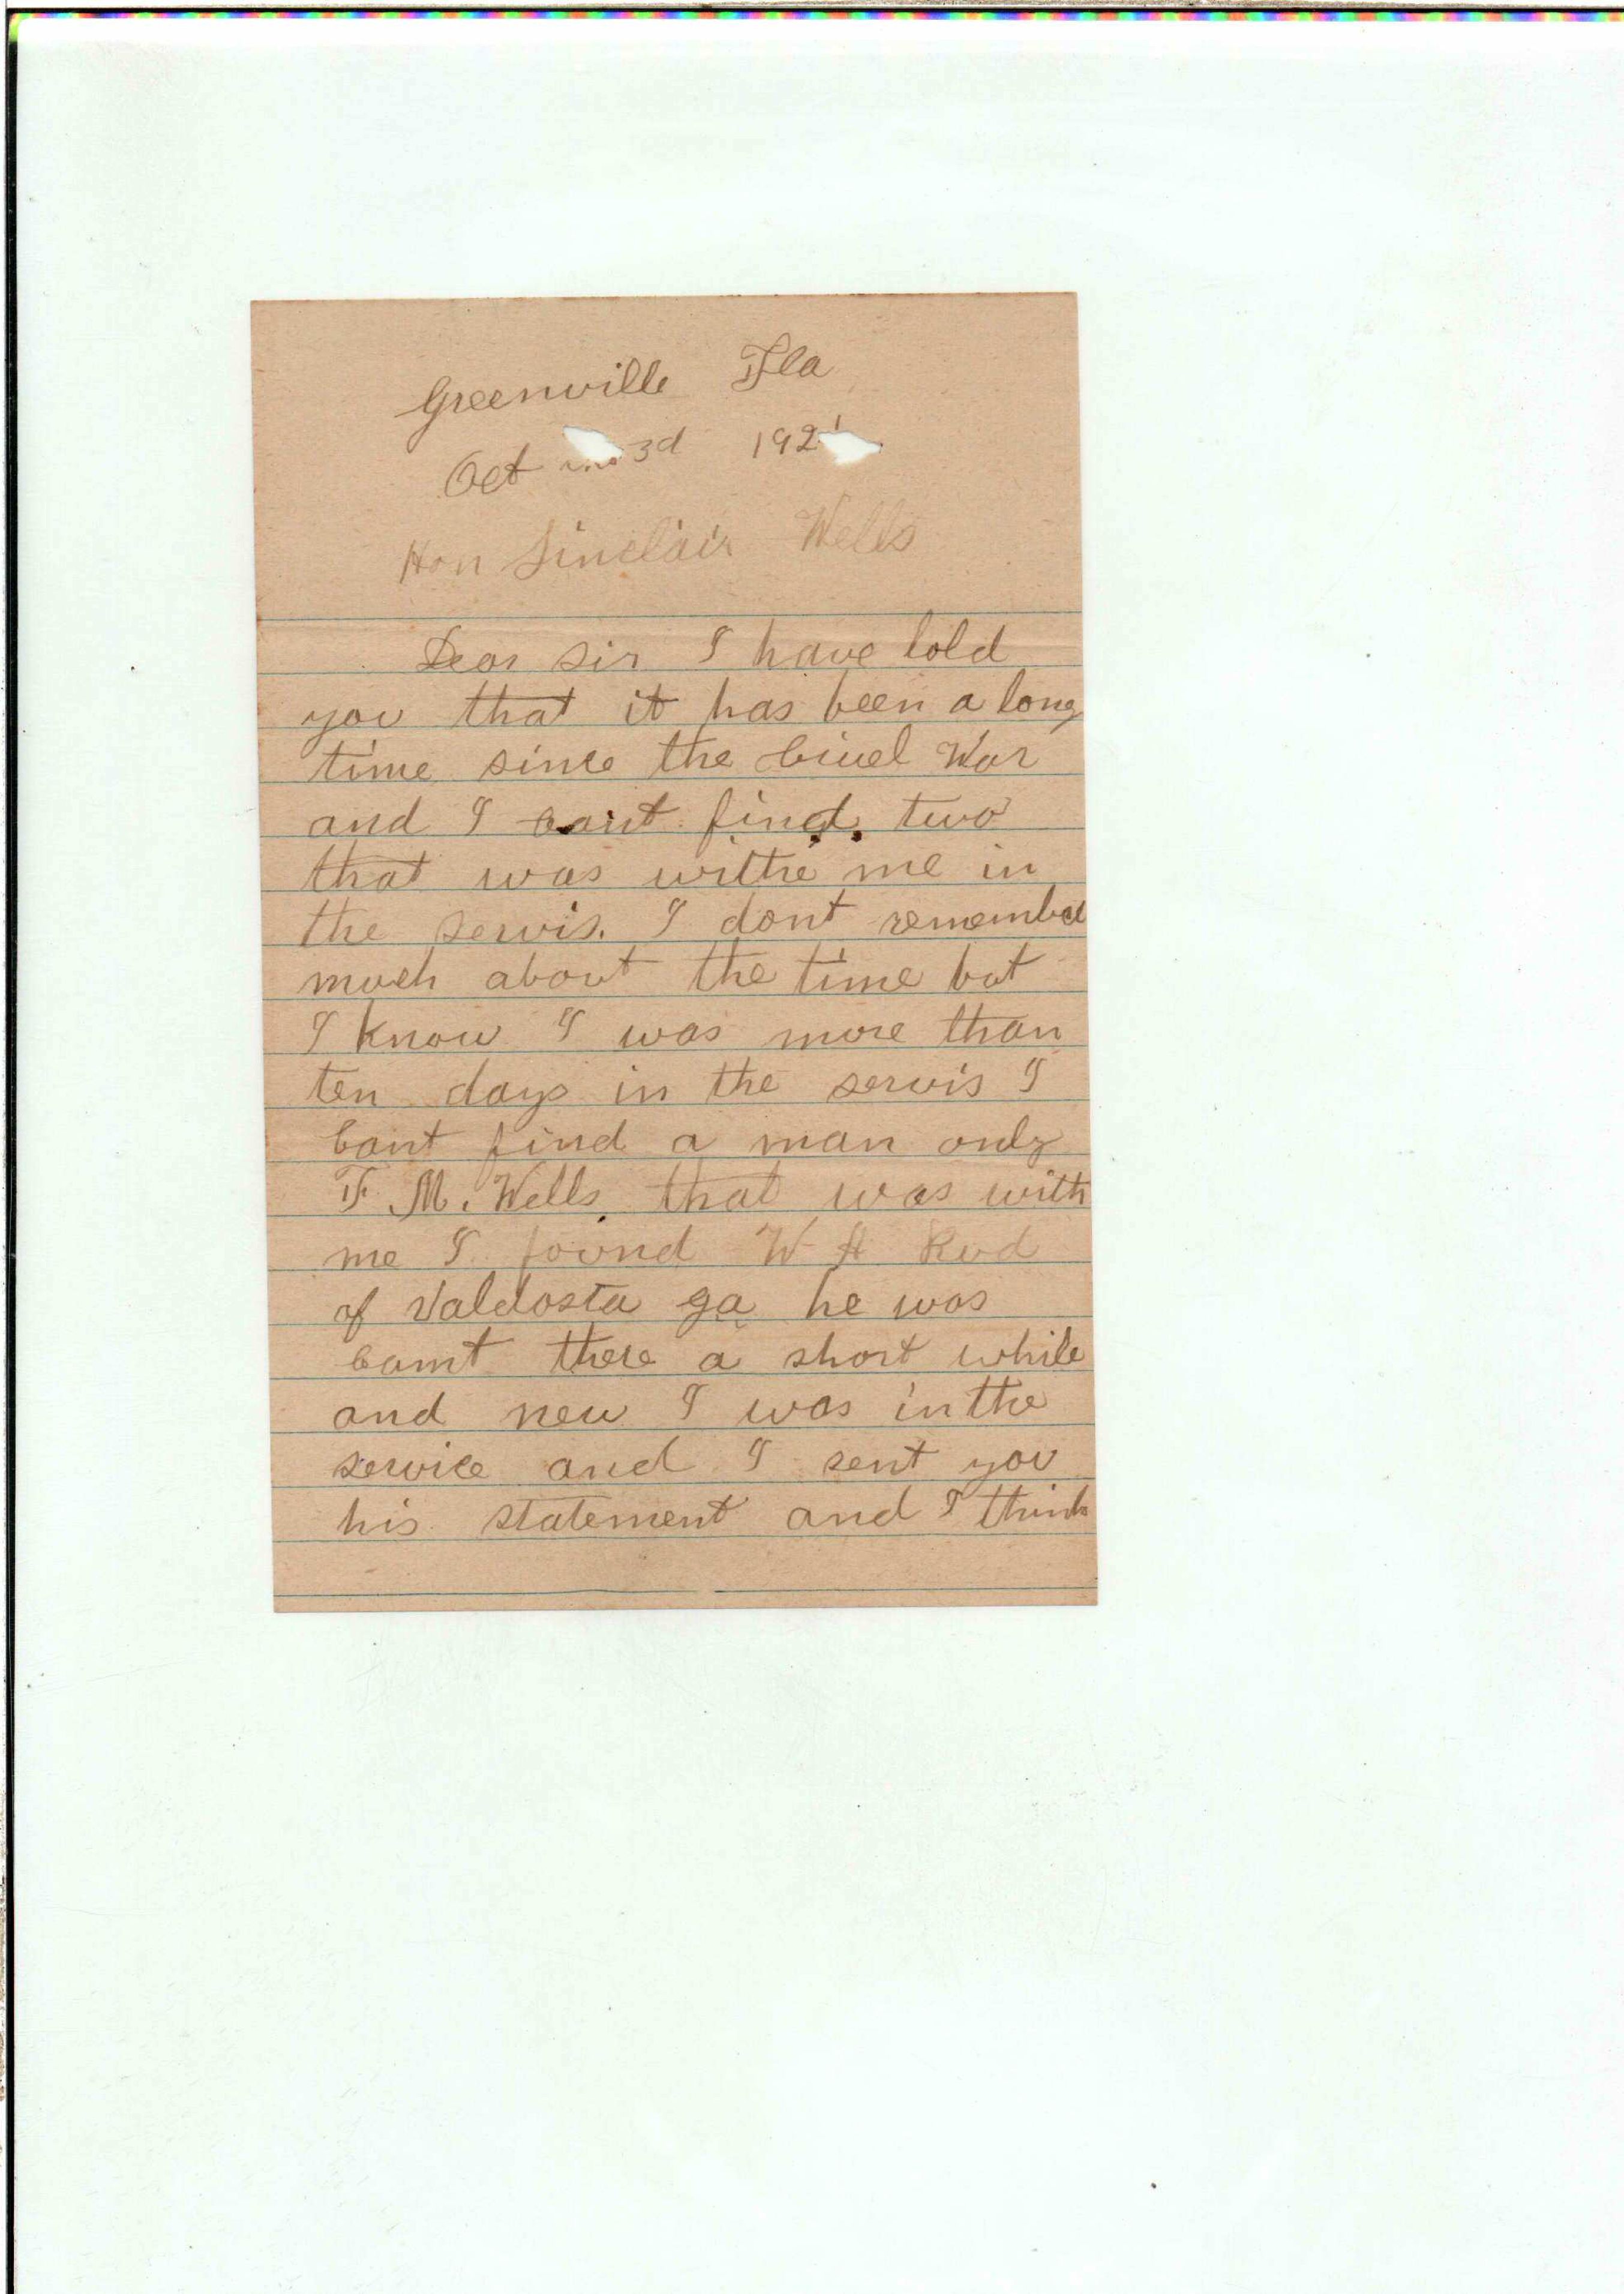 Greenville Fla
Oct 3d 192
Hon Sinclair Wells
Dear sir I have told
you that it has been a long
time since the Civel War
and I cant find two
that was withe me in
the servis. I dont remember
much about the time but
I know I was more than
ten days in the servis I
Cant find a man only
F. M. Wells that was with
me I found W H Rud
of Valdosta ga he was
there a short while
and new I was in the
service and I sent you
his statement and I think